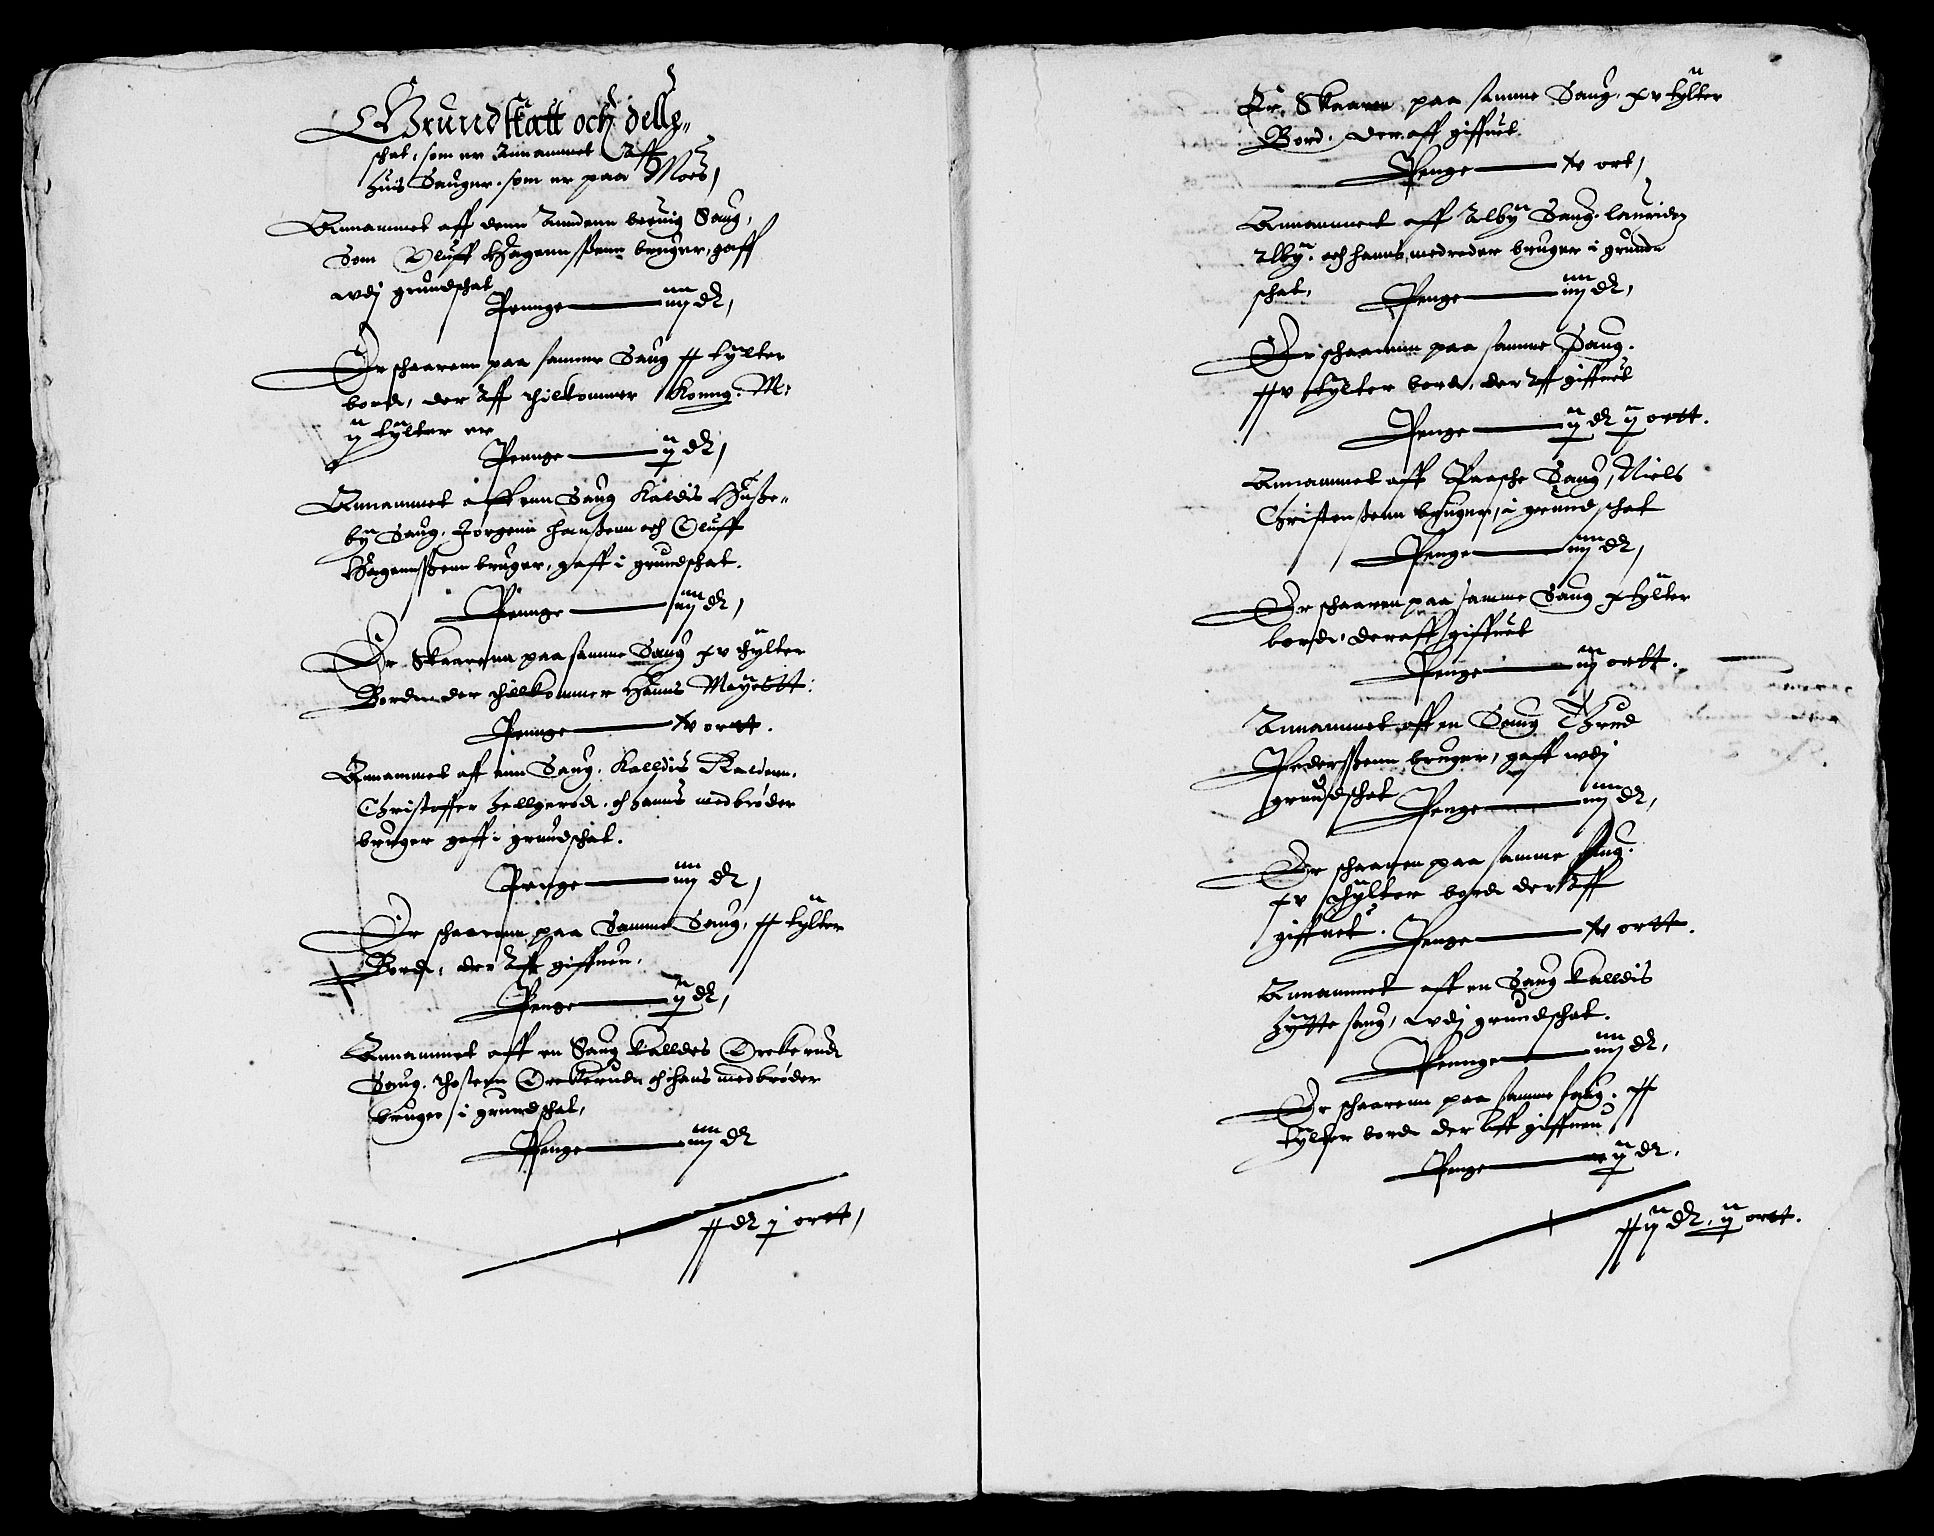 Grundskatt och delle-
schat, som er Annammet Aff
huis Sauger som er paa Moes,
Annammet aff denn Anndenn Saug,
Som Oluff Hagennssenn bruger, gaff
udj grundschat
Pennge — iiij dr,
Er schaarenn paa samme Saug xx tylter
bord, der Aff thilkommer Konng: M:
ij tylter er
Pennge — ij dr,
Annammet aff enn Saug Kaldis Huße-
by Saug, Jørgenn Hanßenn och Oluff
Hagennssenn bruger, gaff i grundschat.
Pennge — iiij dr,
Er Skaarenn paa samme Saug xv tylter
Bord, der thilkommer Hanns Mayestt:
Pennge — vj ortt.
Annammet aff enn Saug, Kalldis
Christoffer Hellgerød, och Hanns medbrøder
bruger gaff i grundschat.
Pennge — iiij dr,
Er schaarenn paa Samme Saug, xx tylter
Bord, der Aff giffuen,
Penge — ij dr,
Annammet aff en Saug kalldes Orekerud
Saug, Orekerudn och hans medbrøder
bruger i grundschat,
Penge — iiij dr
xx dr j ortt,
Er Skaaren paa samme Saug, xv tylter
Bord, der aff giffuet.
Penge — vj ort,
Annammet aff Alby Saug lauridz
Alby, och hanns medreder bruger i grund
schat,
Penge — iiij dr,
Er schaarenn paa samme Saug.
xxv tylter bord, der Aff giffuet
Penge — ij dr ij ortt.
Annammet aff Paasche Saug, Niels
Christenßenn bruger, i grundschat
Penge — iiij dr,
Er schaaren paa samme Saug x tylter
bord, der aff giffuet
Penge — iiij ortt.
Annammet aff en Saug
Pederssenn bruger, gaff udj
grundschat
Penge — iiij dr,
Er schaaren paa samme saug.
xv thylter bord der Aff
giffuet.
Penge — vj ortt.
Annammet aff en Saug kalldis
Hytte saug, udj grundschat.
Pennge — iiij dr,
Er schaarenn paa samme saug. xx
tylter bord der Aff giffuen
Penge — ij dr.
xxij dr. ij ortt.